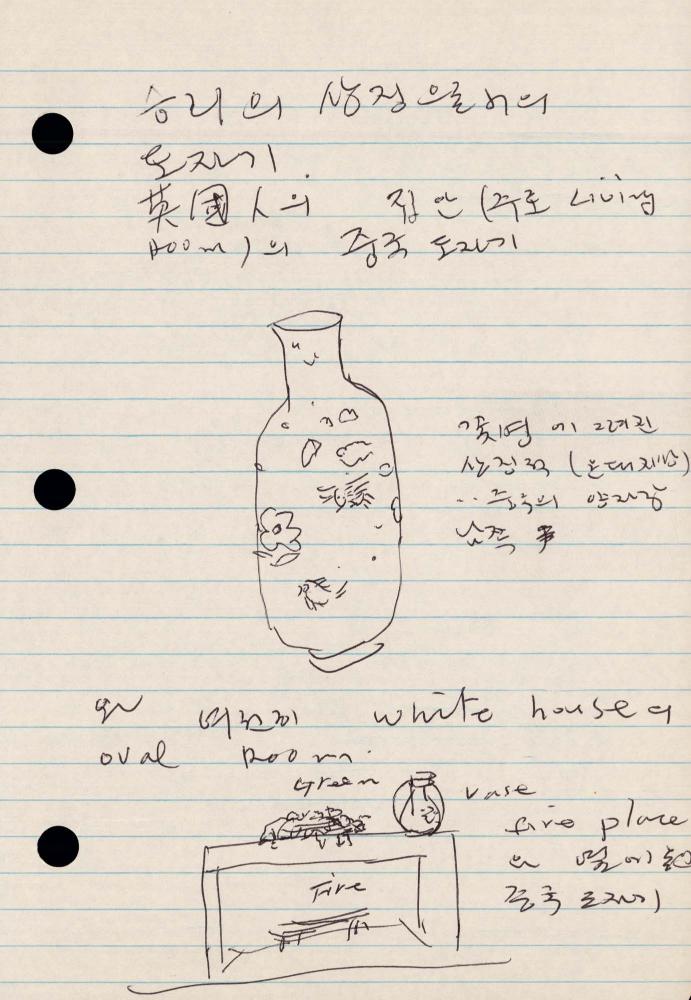 승리의 상징으로서의
도자기.
英國人의 집안 (주로 Living
Room)의 중국 도자기
꽃병에 그려진
상징적
중국의 양자강
남쪽
white house의
oval Room.
Green
vase
fire place
Fire
옆에
중국 도자기